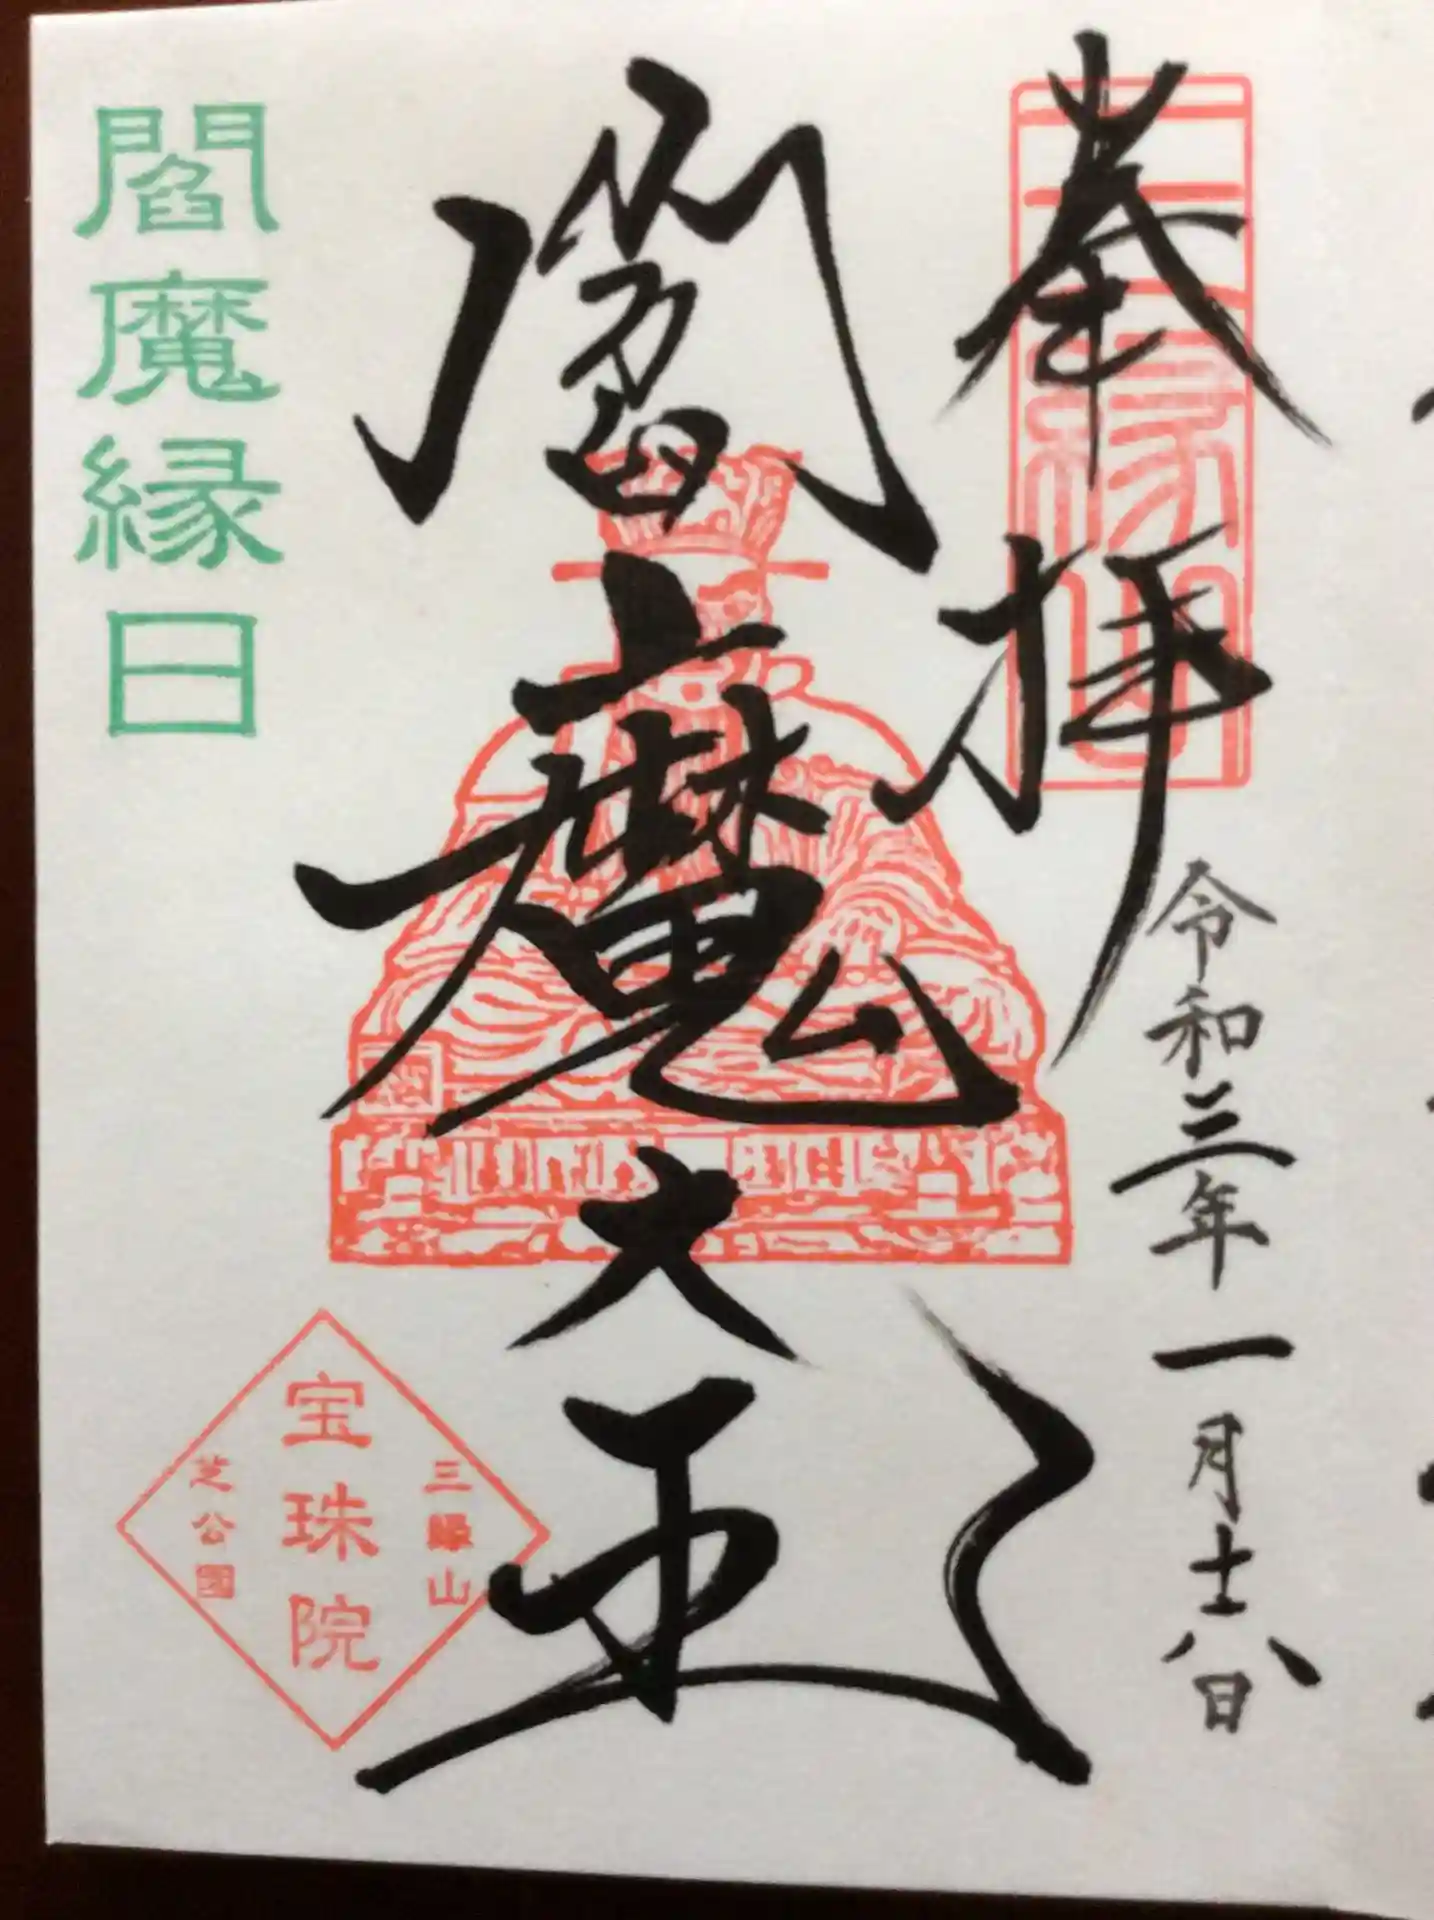 奉拝
三縁山
令和三年一月十八日
閻魔大王
閻魔縁日
三縁山
宝珠院
芝公園